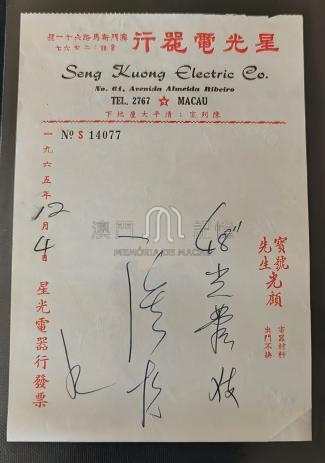 行器電光星
澳門新馬路六十一號
電話：二七六七
Seng Kuong Electric Co.
No. 61, Avenida Almeida Ribeiro
TEL. 2767 ★ MACAU
下地厦大平清：室列陳
Nº S 14077
寶號
先生 光顧
電器材料
出門不換
48" 光
一九六五年12月4日
星光電器行發票
澳門 記憶
MEMÓRIA DE MACAU